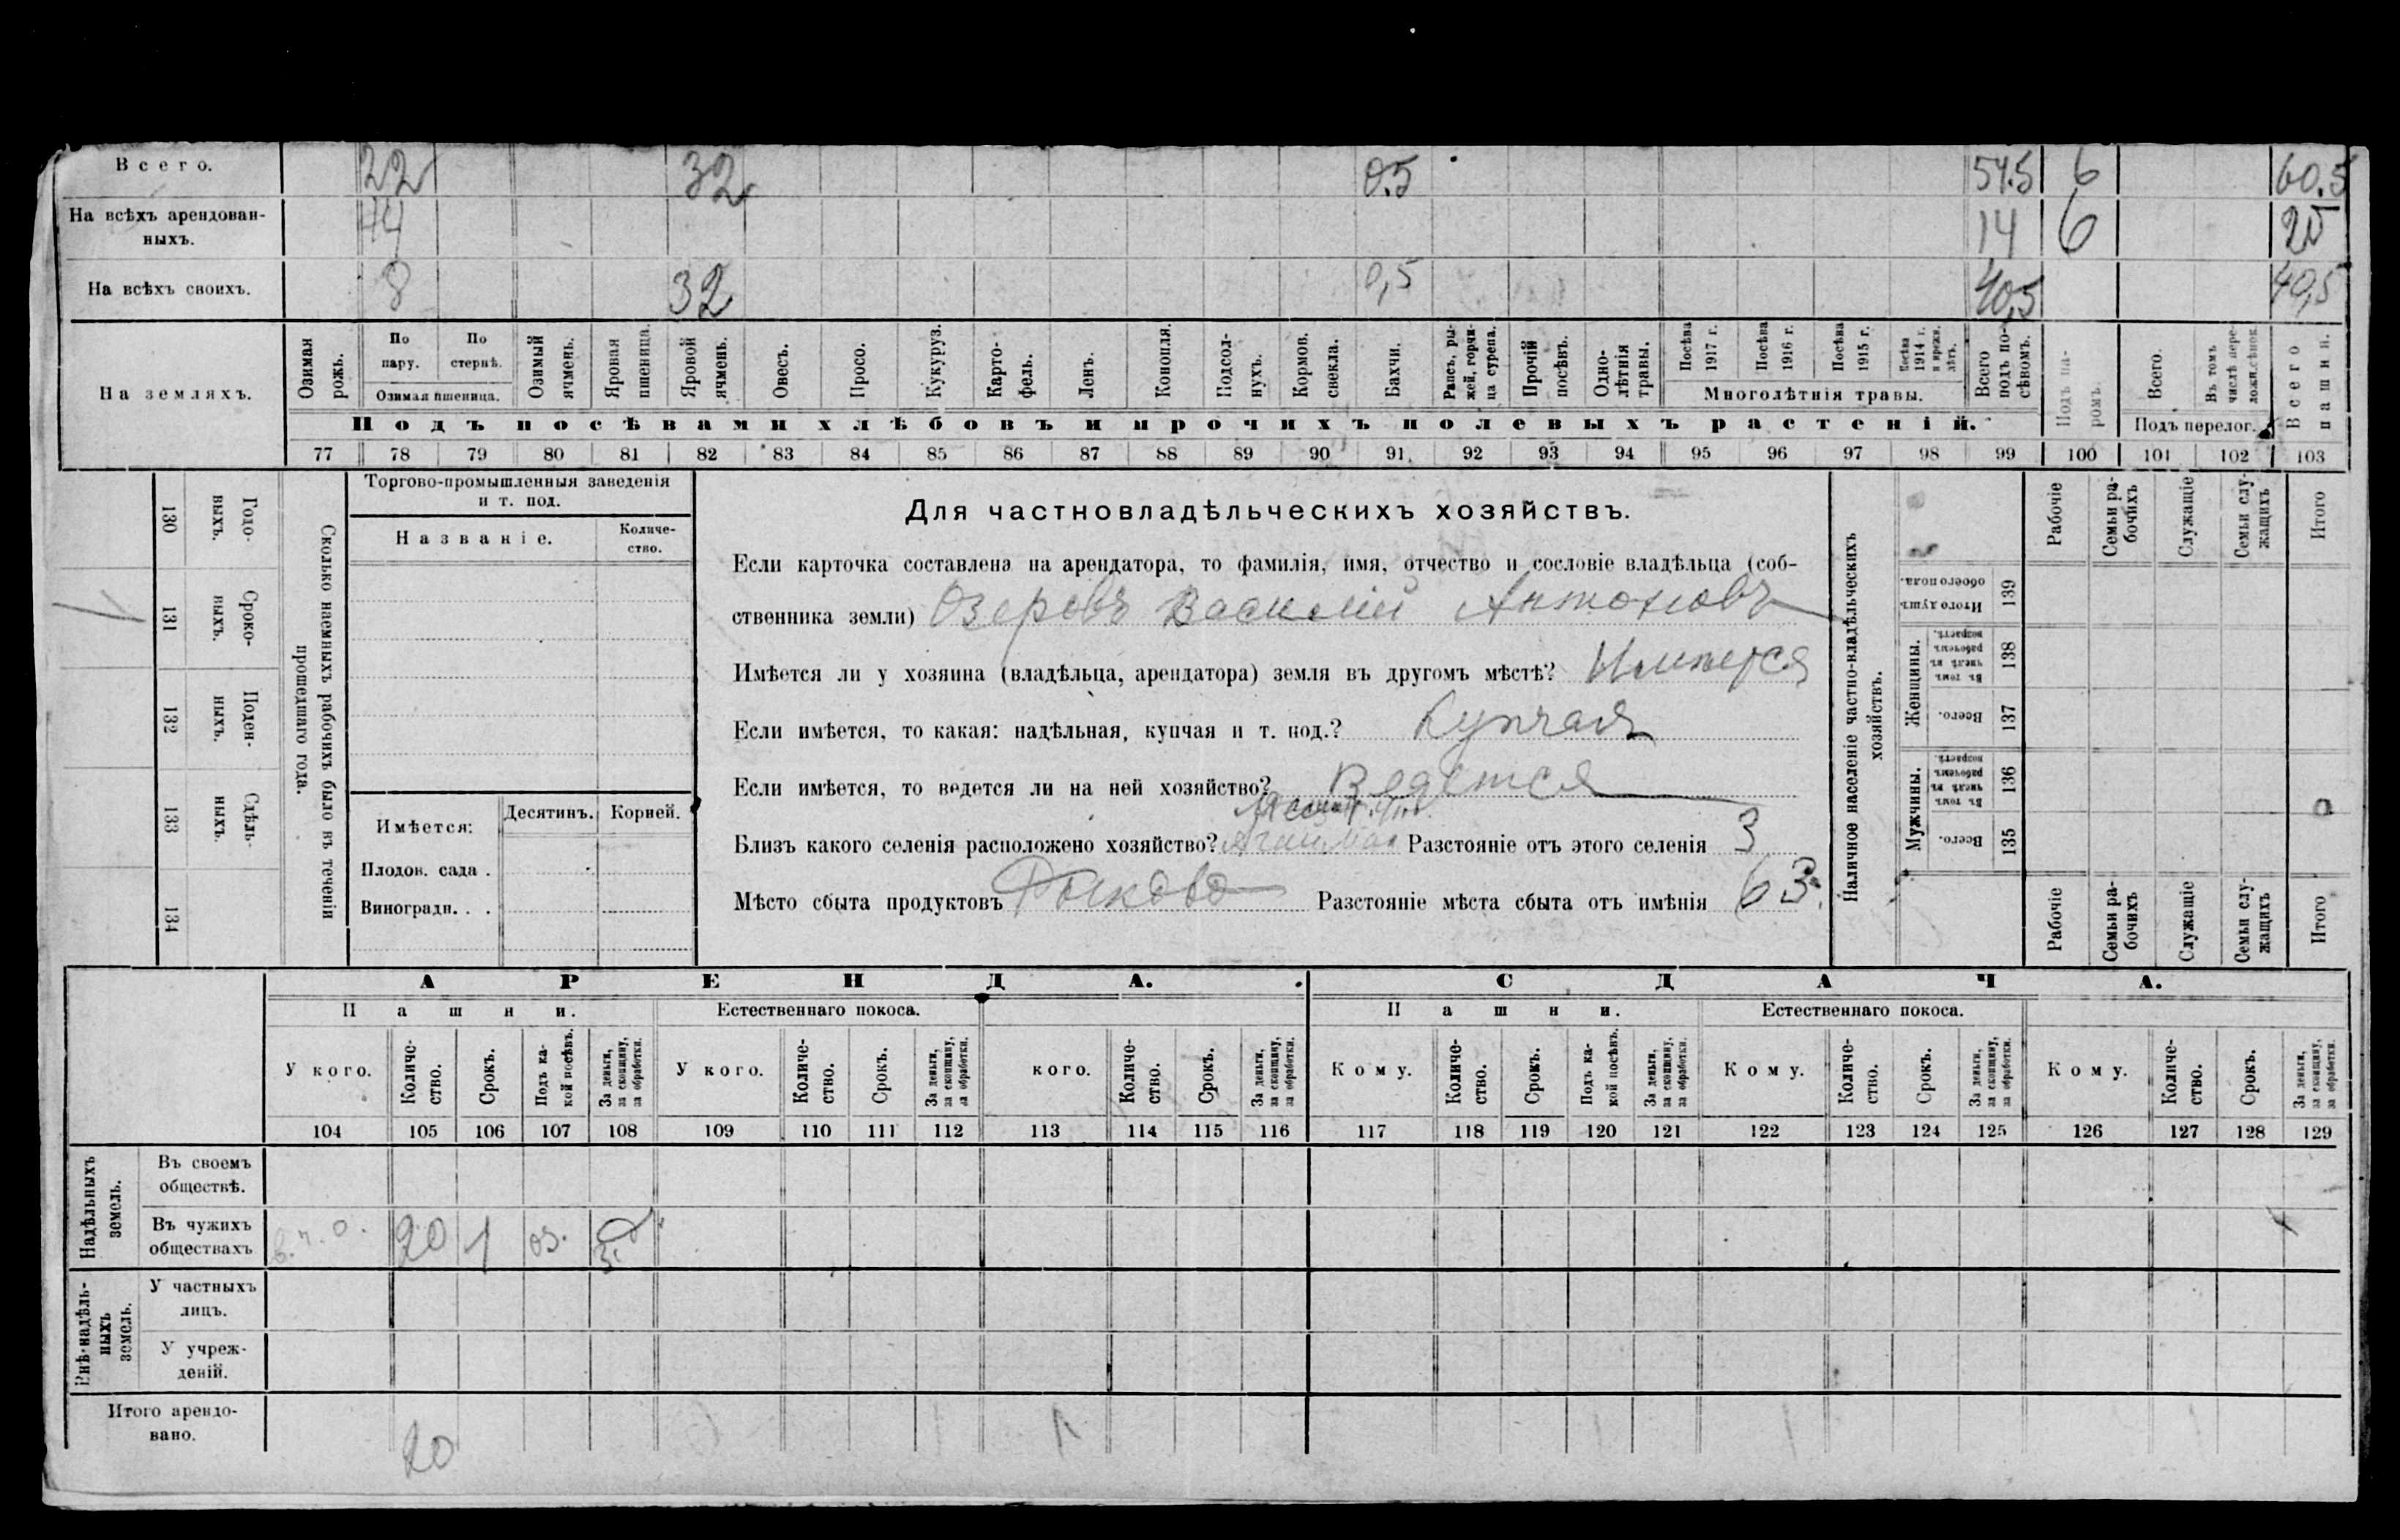 Всего. 22 32 0.5 54.5 6 60.5
На всѣхъ арендован-
ныхъ. 14 14 6 20
На всѣхъ своихъ. 8 32 0,5 40,5 40,5
На земляхъ.
Озимая рожь.
По пару.
По стернѣ.
Озимая пшеница.
Озимый ячмень.
Яровая пшеница.
Яровой ячмень.
Овесъ.
Просо.
Кукуруз.
Карто-
фель.
Ленъ.
Конопля.
Подсол-
нухъ.
Кормов.
свекла.
Бахчи.
Рапсъ, ры-
жей, горчи-
ца сурепа.
Прочій
посѣвъ.
Одно-
лѣтнія
травы.
Посѣва
1917 г.
Посѣва
1916 г.
Посѣва
1915 г.
Посѣва
1914 г.
и прежн.
лѣтъ.
Многолѣтнія травы.
Всего
подъ по-
сѣвомъ.
Подъ па-
ромъ.
Всего.
Въ томъ
числѣ пере-
ложн. сѣнок.
Подъ перелог.
Всего
пашни.
Подъ посѣвами хлѣбовъ и прочихъ полевыхъ растеній.
77 78 79 80 81 82 83 84 85 86 87 88 89 90 91 92 93 94 95 96 97 98 99 100 101 102 103
Сколько наемныхъ рабочихъ было въ теченіи
прошедшаго года.
Годо-
выхъ.
130
Сроко-
выхъ.
131
Поден-
ныхъ.
132
Сдѣль-
ныхъ.
133
134
Торгово-промышленныя заведенія
и т. под.
Названіе.
Количе-
ство.
Имѣется:
Десятинъ. Корней.
Плодов. сада .
Виноградн. . .
Для частновладѣльческихъ хозяйствъ.
Если карточка составлена на арендатора, то фамилія, имя, отчество и сословіе владѣльца (соб-
ственника земли) Озеровъ Василій Антоновъ
Имѣется ли у хозяина (владѣльца, арендатора) земля въ другомъ мѣстѣ? Имѣется
Если имѣется, то какая: надѣльная, купчая и т. под.? Купчая
Если имѣется, то ведется ли на ней хозяйство? Ведется
Близъ какого селенія расположено хозяйство? Разстояніе отъ этого селенія 3
Мѣсто сбыта продуктовъ Рыково Разстояніе мѣста сбыта отъ имѣнія 63.
Наличное населеніе частно-владѣльческихъ
хозяйствъ.
Рабочіе
Семьи ра-
бочихъ
Служащіе
Семьи слу-
жащихъ
Итого
Итого душъ
обоего пола.
139
Женщины.
Въ томъ
числѣ въ
рабочемъ
возрастѣ.
138
Всего.
137
Мужчины.
Въ томъ
числѣ въ
рабочемъ
возрастѣ.
136
Всего.
135
Рабочіе
Семьи ра-
бочихъ
Служащіе
Семьи слу-
жащихъ
Итого
АРЕНДА. СДАЧА.
Пашни. Естественнаго покоса. Пашни. Естественнаго покоса.
У кого.
Количе-
ство.
Срокъ.
Подъ ка-
кой посѣвъ.
За деньги,
за скопщину,
за обработки.
У кого.
Количе-
ство.
Срокъ.
За деньги,
за скопщину,
за обработки.
кого.
Количе-
ство.
Срокъ.
За деньги,
за скопщину,
за обработки.
Кому.
Количе-
ство.
Срокъ.
Подъ ка-
кой посѣвъ.
За деньги,
за скопщину,
за обработки.
Кому.
Количе-
ство.
Срокъ.
За деньги,
за скопщину,
за обработки.
Кому.
Количе-
ство.
Срокъ.
За деньги,
за скопщину,
за обработки.
104 105 106 107 108 109 110 111 112 113 114 115 116 117 118 119 120 121 122 123 124 125 126 127 128 129
Надѣльныхъ
земель.
Въ своемъ
обществѣ.
Въ чужихъ
обществахъ в.ч.о. 20 1 оз.
Внѣ-надѣль-
ныхъ
земель.
У частныхъ
лицъ.
У учреж-
деній.
Итого арендо-
вано. 20